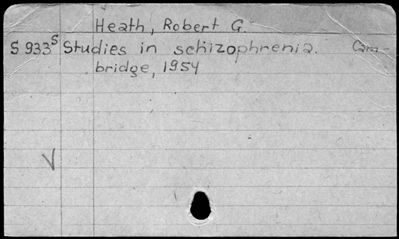 Heath, Robert G.
S 933s Studies in schizophrenia. Cam-
bridge, 1954
√